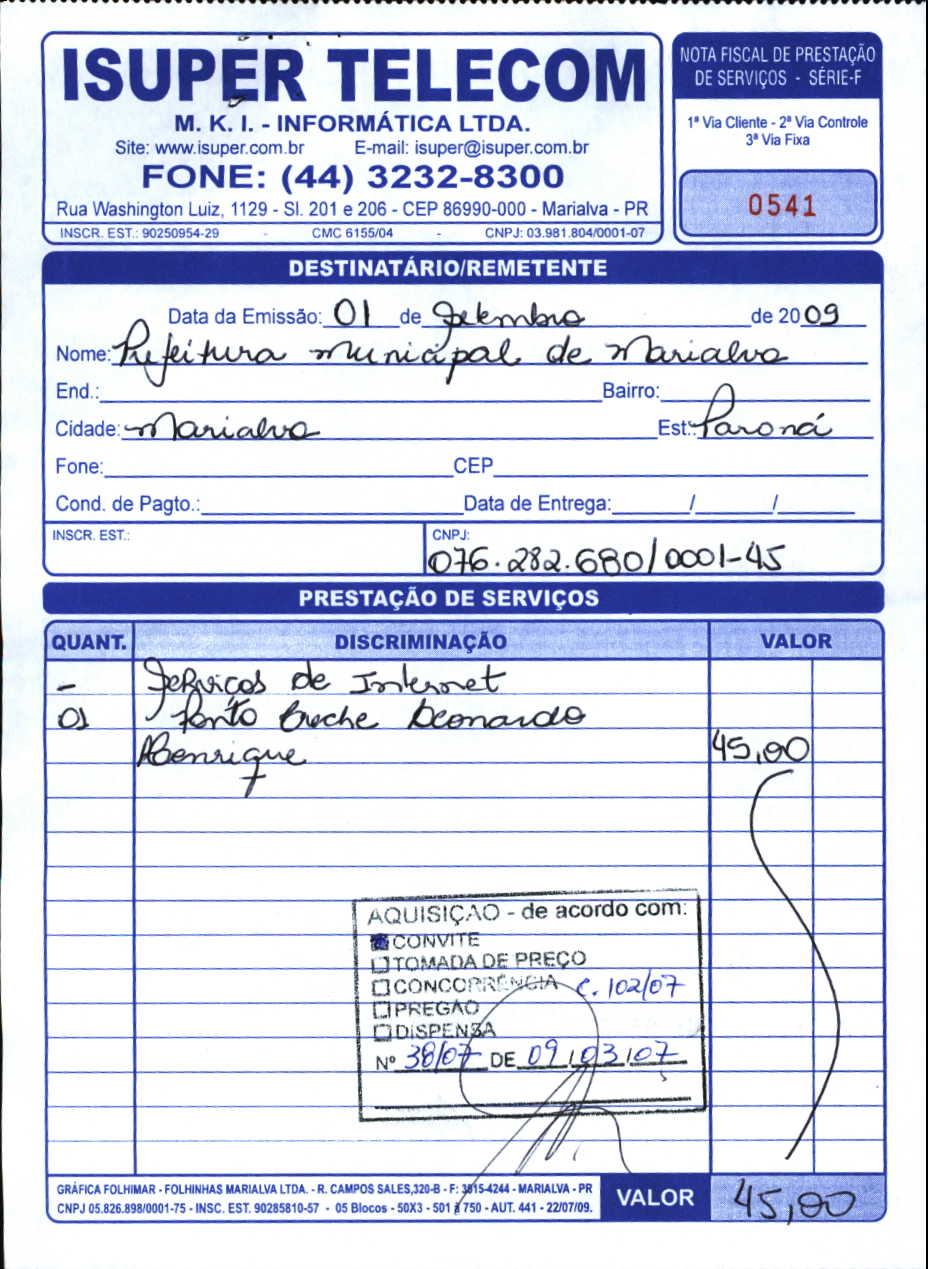 ISUPER TELECOM
M. K. I. - INFORMÁTICA LTDA.
Site: www.isuper.com.br E-mail: isuper@isuper.com.br
FONE: (44) 3232-8300
Rua Washington Luiz, 1129 - Sl. 201 e 206 - CEP 86990-000 - Marialva - PR
INSCR. EST.: 90250954-29 - CMC 6155/04 - CNPJ: 03.981.804/0001-07
NOTA FISCAL DE PRESTAÇÃO
DE SERVIÇOS - SÉRIE-F
1ª Via Cliente - 2ª Via Controle
3ª Via Fixa
0541
DESTINATÁRIO/REMETENTE
Data da Emissão: 01 de Setembro de 2009
Nome: Prefeitura Municipal de Marialva
End.: Bairro:
Cidade: Marialva Est.: Paraná
Fone: CEP
Cond. de Pagto.: Data de Entrega: / /
INSCR. EST.: CNPJ:
076.282.680/0001-45
PRESTAÇÃO DE SERVIÇOS
QUANT. DISCRIMINAÇÃO VALOR
- Serviços de Internet
01 Ponto Creche Leonardo
Henrique 45,00
AQUISIÇÃO - de acordo com:
CONVITE
TOMADA DE PREÇO
CONCORRÊNCIA C. 102/07
PREGÃO
DISPENSA
Nº 38/07 DE 09/03/07
GRÁFICA FOLHIMAR - FOLHINHAS MARIALVA LTDA. - R. CAMPOS SALES,320-B - F: 3015-4244 - MARIALVA - PR
CNPJ 05.826.898/0001-75 - INSC. EST. 90285810-57 - 05 Blocos - 50X3 - 501 a 750 - AUT. 441 - 22/07/09.
VALOR 45,00